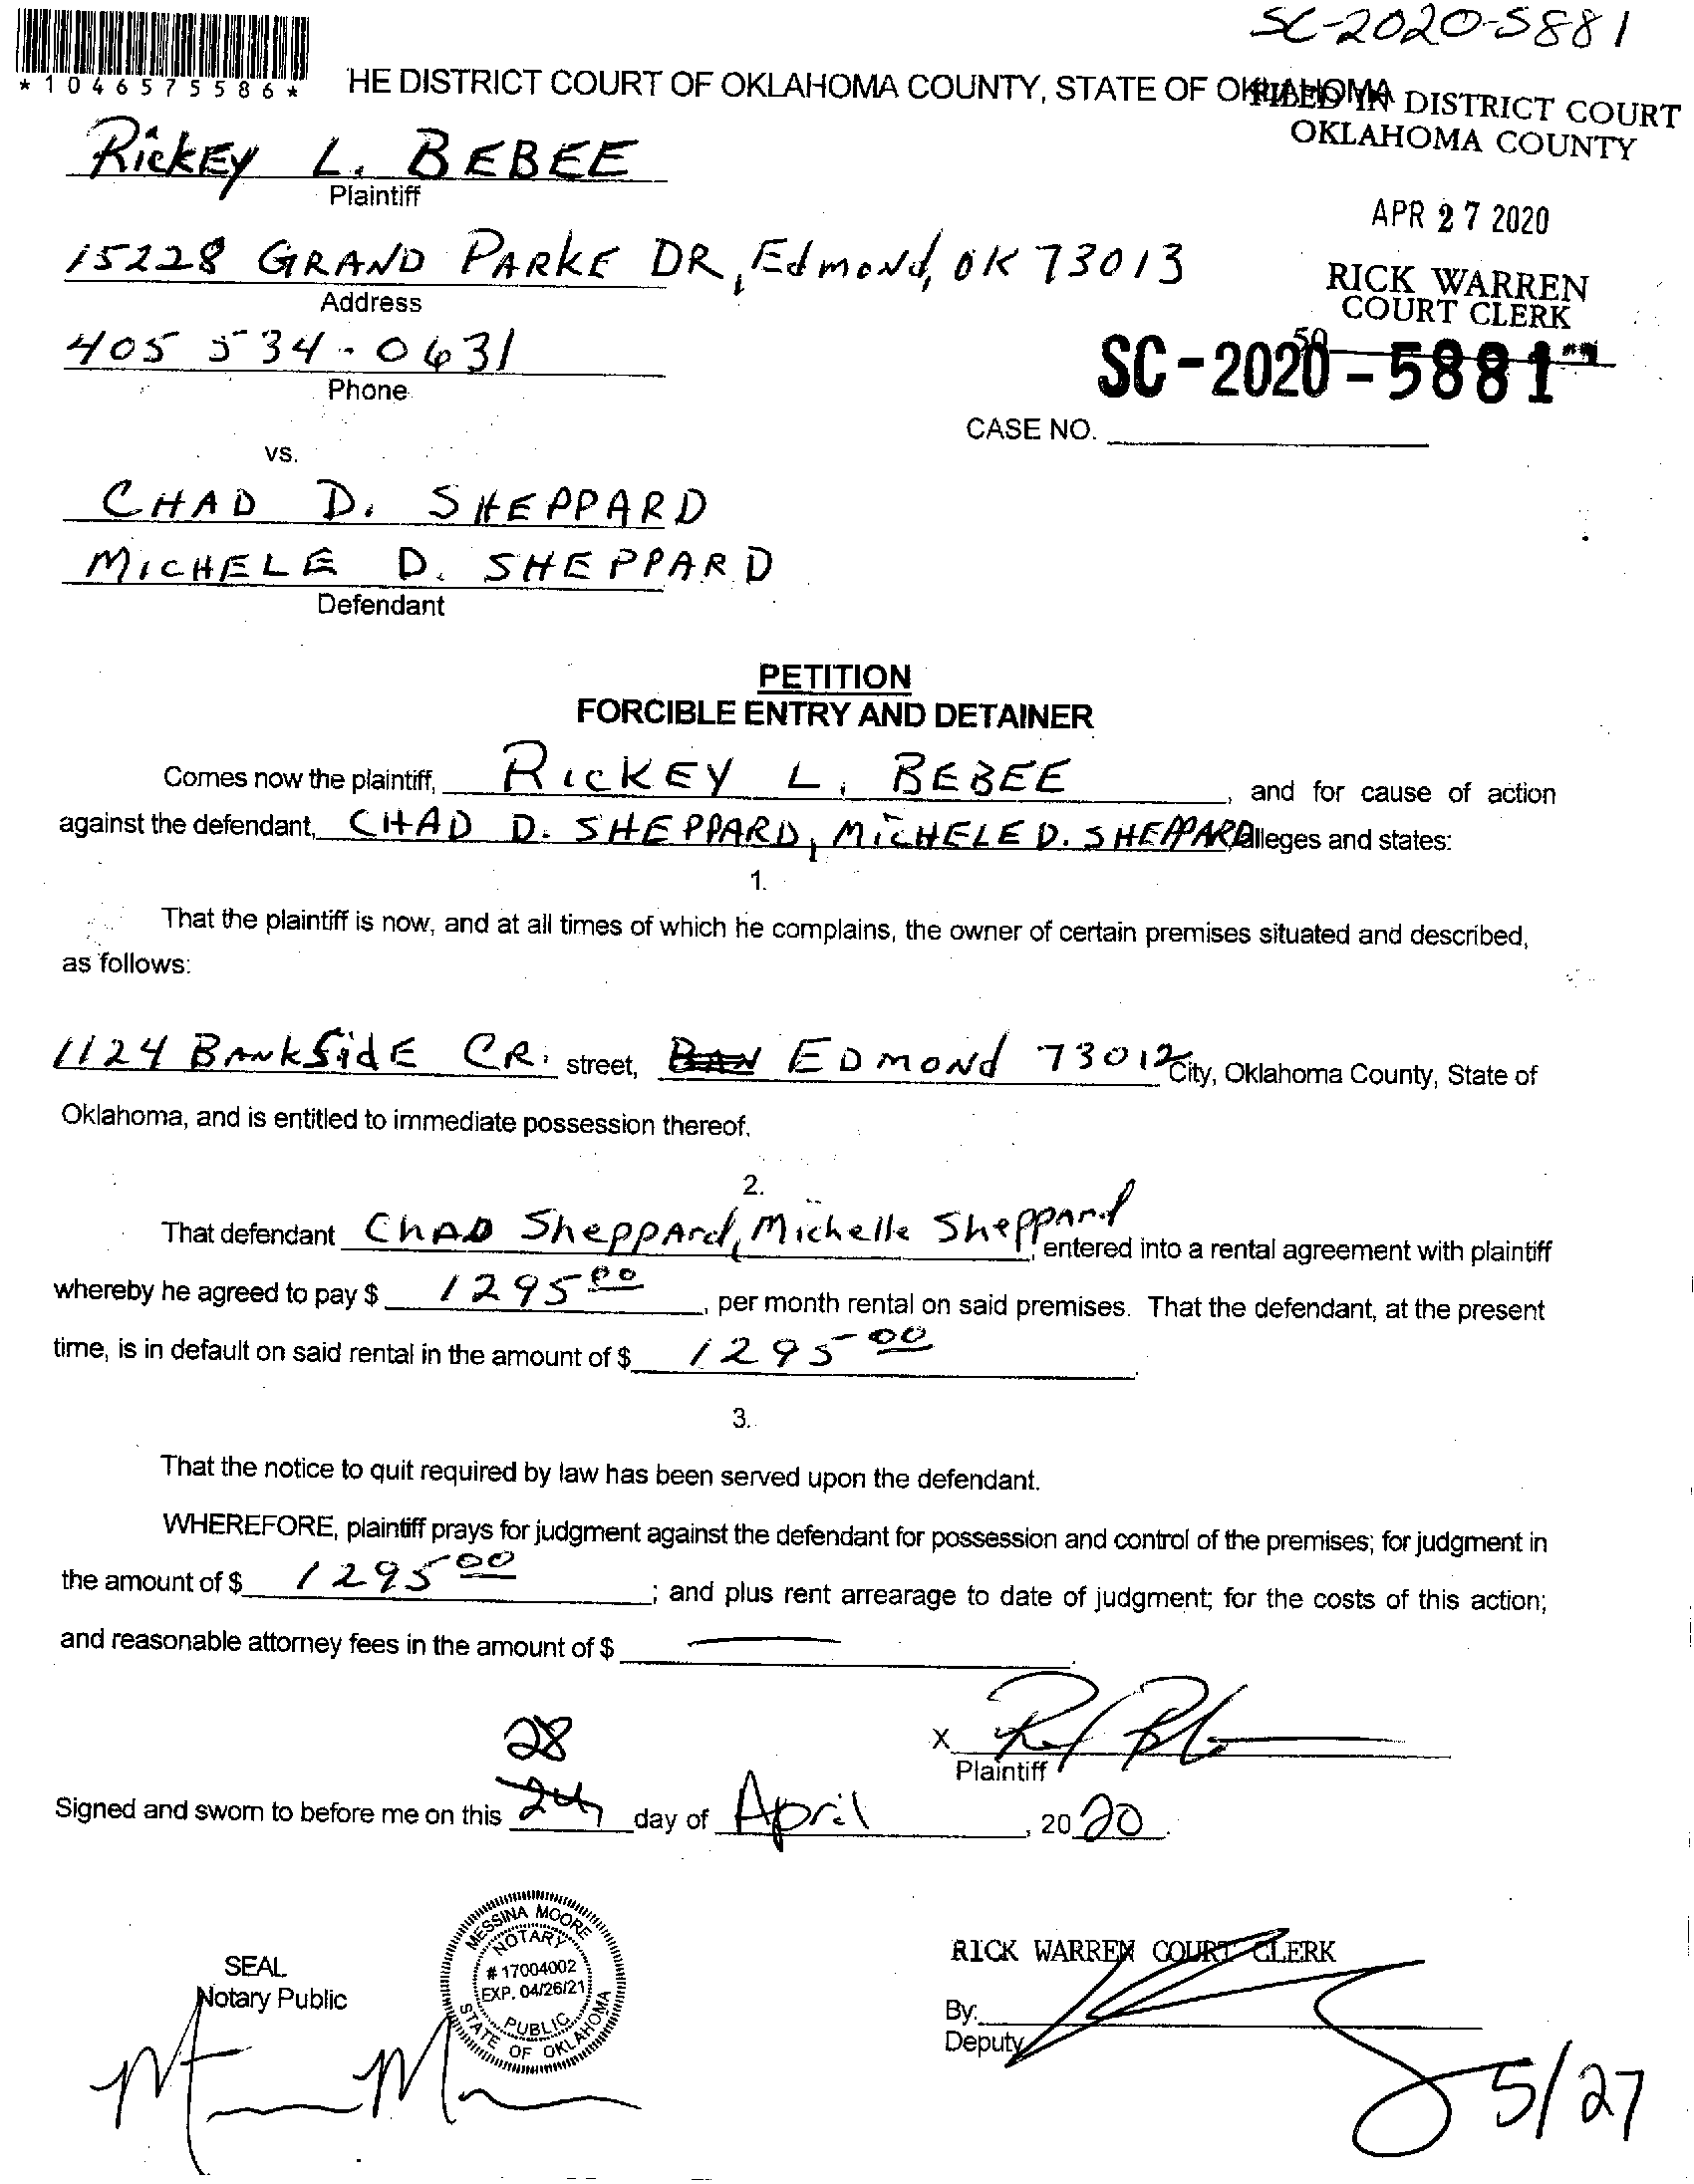 SC-2020-5881
*1046575586*
HE DISTRICT COURT OF OKLAHOMA COUNTY, STATE OF OKLAHOMA
FILED IN DISTRICT COURT
OKLAHOMA COUNTY
RickEy L. BEBEE
Plaintiff
APR 27 2020
15228 GRAND PARKE DR, Edmond, OK 73013
Address
RICK WARREN
COURT CLERK
405 534-0631
Phone
SC-2020-5881
CASE NO.
vs.
CHAD D. SHEPPARD
MICHELE D. SHEPPARD
Defendant
PETITION
FORCIBLE ENTRY AND DETAINER
Comes now the plaintiff, RICKEY L. BEBEE, and for cause of action
against the defendant, CHAD D. SHEPPARD, MICHELE D. SHEPPARD alleges and states:
1.
That the plaintiff is now, and at all times of which he complains, the owner of certain premises situated and described,
as follows:
1124 BANKSidE CR. street, BAN EDMOND 73012 City, Oklahoma County, State of
Oklahoma, and is entitled to immediate possession thereof.
2.
That defendant CHAD SheppArd, Michelle SheppArd, entered into a rental agreement with plaintiff
whereby he agreed to pay $ 1295 00, per month rental on said premises. That the defendant, at the present
time, is in default on said rental in the amount of $ 1295 00.
3.
That the notice to quit required by law has been served upon the defendant.
WHEREFORE, plaintiff prays for judgment against the defendant for possession and control of the premises; for judgment in
the amount of $ 1295 00; and plus rent arrearage to date of judgment; for the costs of this action;
and reasonable attorney fees in the amount of $ —.
X
Plaintiff
28
Signed and sworn to before me on this 24 day of April, 2020.
MESSINA MOORE
NOTARY
# 17004002
EXP. 04/26/21
PUBLIC
STATE OF OKLAHOMA
SEAL
Notary Public
RICK WARREN COURT CLERK
By:
Deputy
5/27